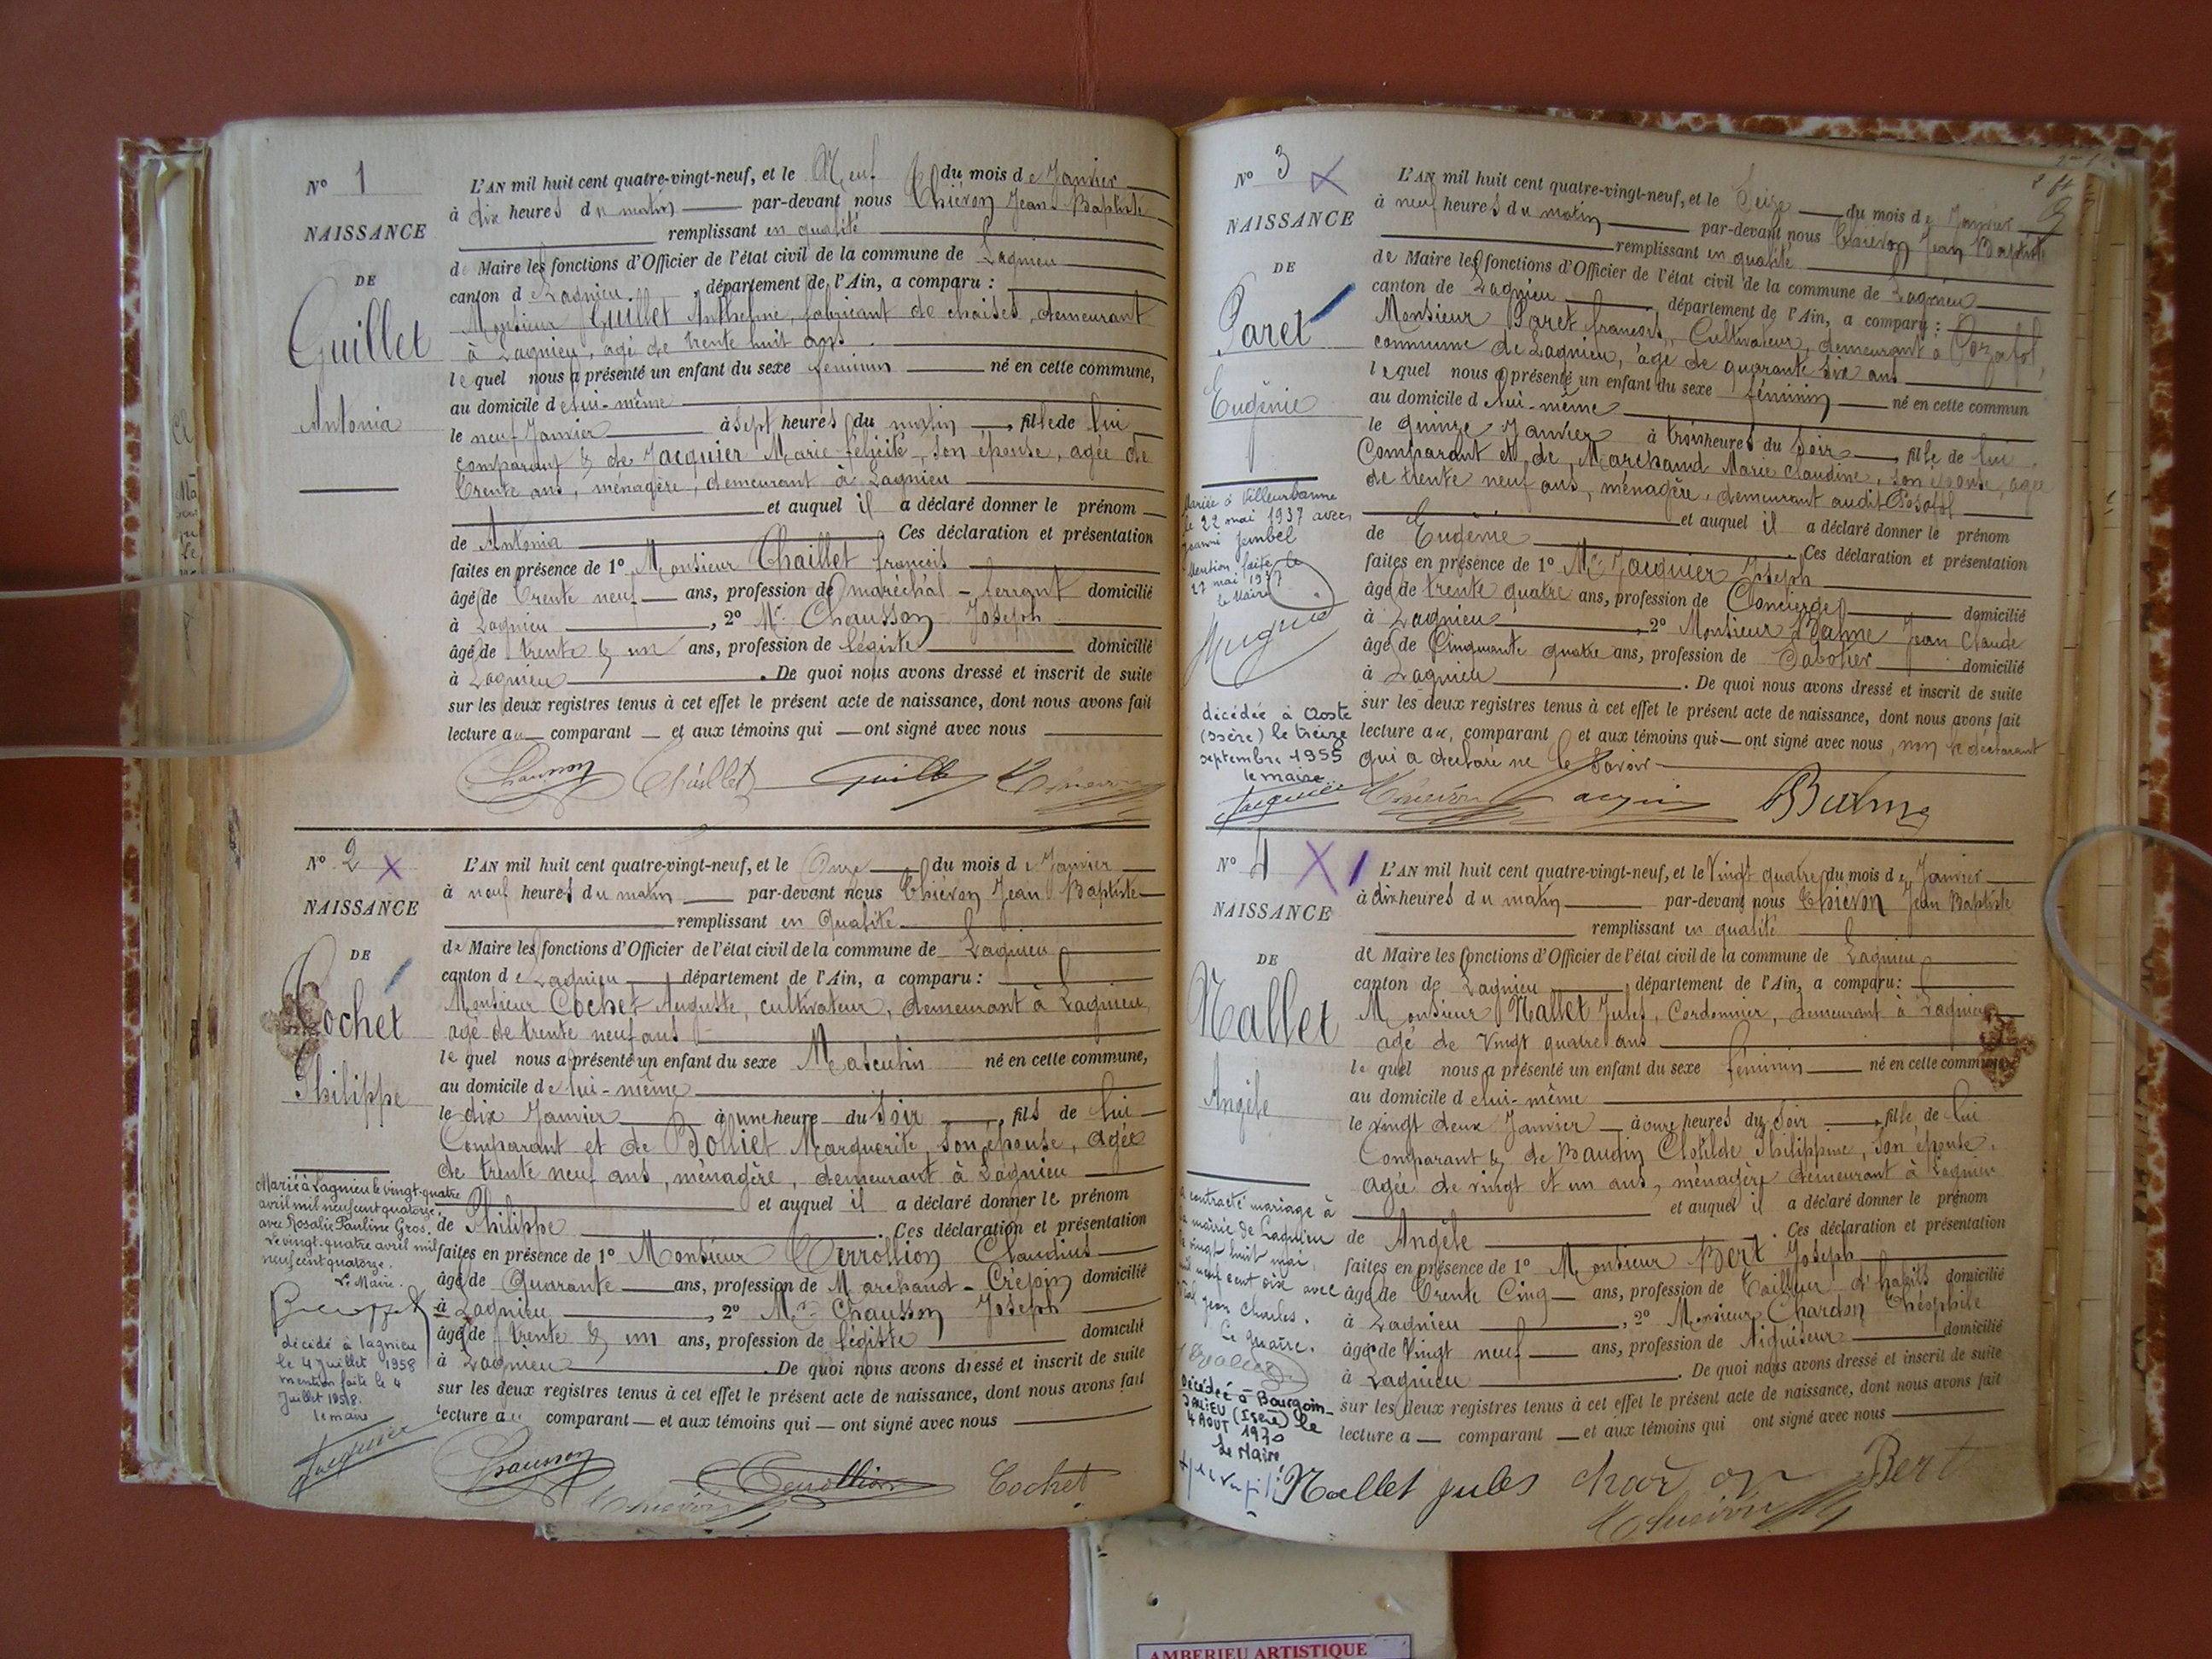 N° 1
NAISSANCE
DE
Guillet
Antonia
L'AN mil huit cent quatre-vingt-neuf, et le Neuf du mois de Janvier
à dix heures du matin par-devant nous Thiévon Jean Baptiste
remplissant en qualité
de Maire les fonctions d'Officier de l'état civil de la commune de Lagnieu
canton de Lagnieu, département de l'Ain, a comparu :
Monsieur Guillet Anthelme, fabricant de chaises, demeurant
à Lagnieu, agé de trente huit ans
lequel nous a présenté un enfant du sexe féminin né en cette commune,
au domicile de lui-même
le neuf Janvier à sept heures du matin, fille de lui
comparant & de Jacquier Marie félicité, son épouse, agée de
trente ans, ménagère, demeurant à Lagnieu
et auquel il a déclaré donner le prénom
de Antonia. Ces déclaration et présentation
faites en présence de 1° Monsieur Chaillet françois
âgé de trente neuf ans, profession de maréchal-ferrant domicilié
à Lagnieu, 2° Mr Chausson Joseph
âgé de trente & un ans, profession de légiste domicilié
à Lagnieu. De quoi nous avons dressé et inscrit de suite
sur les deux registres tenus à cet effet le présent acte de naissance, dont nous avons fait
lecture au comparant et aux témoins qui ont signé avec nous
Chausson Chaillet Guillet Thiévon
N° 2 X
NAISSANCE
DE
Cochet
Philippe
L'AN mil huit cent quatre-vingt-neuf, et le Onze du mois de Janvier
à neuf heures du matin par-devant nous Thiévon Jean Baptiste
remplissant en qualité
de Maire les fonctions d'Officier de l'état civil de la commune de Lagnieu
canton de Lagnieu, département de l'Ain, a comparu :
Monsieur Cochet Auguste, cultivateur, demeurant à Lagnieu
agé de trente neuf ans
lequel nous a présenté un enfant du sexe Masculin né en cette commune,
au domicile de lui-même
le dix Janvier à une heure du soir, fils de lui
Comparant et de Bolliet Marguerite, son épouse, agée
de trente neuf ans, ménagère, demeurant à Lagnieu
et auquel il a déclaré donner le prénom
de Philippe. Ces déclaration et présentation
faites en présence de 1° Monsieur Verrollion Claudius
âgé de Quarante ans, profession de Marchand-Crépin domicilié
à Lagnieu, 2° Mr Chausson Joseph
âgé de trente & un ans, profession de légiste domicilié
à Lagnieu. De quoi nous avons dressé et inscrit de suite
sur les deux registres tenus à cet effet le présent acte de naissance, dont nous avons fait
lecture au comparant et aux témoins qui ont signé avec nous
Chausson Verrollion Cochet
Thiévon
Marié à Lagnieu le vingt-quatre
avril mil neuf cent quatorze,
avec Rosalie Pauline Gros.
Le vingt-quatre avril mil
neuf cent quatorze.
Le Maire.
décédé à lagnieu
le 4 juillet 1958
mention faite le 4
Juillet 1958.
le maire
Jacquier
N° 3 X
NAISSANCE
DE
Paret
Eugénie
L'AN mil huit cent quatre-vingt-neuf, et le Seize du mois de Janvier
à neuf heures du matin par-devant nous Thiévon Jean Baptiste
remplissant en qualité
de Maire les fonctions d'Officier de l'état civil de la commune de Lagnieu
canton de Lagnieu département de l'Ain, a comparu :
Monsieur Paret françois, Cultivateur, demeurant à Posafol,
commune de Lagnieu, agé de quarante six ans
lequel nous a présenté un enfant du sexe féminin né en cette commun
au domicile de lui-même
le quinze Janvier à trois heures du Soir, fille de lui
Comparant et de Marchand Marie Claudine, son épouse, agée
de trente neuf ans, ménagère, demeurant audit Posafol
et auquel il a déclaré donner le prénom
de Eugénie. Ces déclaration et présentation
faites en présence de 1° Mr Jacquier Joseph
âgé de trente quatre ans, profession de Concierge domicilié
à Lagnieu, 2° Monsieur Balme Jean Claude
âgé de Cinquante quatre ans, profession de Sabotier domicilié
à Lagnieu. De quoi nous avons dressé et inscrit de suite
sur les deux registres tenus à cet effet le présent acte de naissance, dont nous avons fait
lecture au comparant et aux témoins qui ont signé avec nous, non le déclarant
qui a déclaré ne le savoir
Thiévon Jacquier Balme
Mariée à Villeurbanne
le 22 mai 1937 avec
Joanni Jambel
Mention faite le
27 mai 1937
Le Maire
décédée à Aoste
(Isère) le treize
septembre 1955
le maire
Jacquier
N° 4 X
NAISSANCE
DE
Nallet
Angèle
L'AN mil huit cent quatre-vingt-neuf, et le Vingt quatre du mois de Janvier
à dix heures du matin par-devant nous Thiévon Jean Baptiste
remplissant en qualité
de Maire les fonctions d'Officier de l'état civil de la commune de Lagnieu
canton de Lagnieu, département de l'Ain, a comparu :
Monsieur Nallet Jules, Cordonnier, demeurant à Lagnieu
agé de Vingt quatre ans
lequel nous a présenté un enfant du sexe féminin né en cette commune
au domicile de lui-même
le vingt deux Janvier à onze heures du Soir, fille de lui
Comparant & de Baudin Clotilde Philippine, son épouse,
agée de vingt et un ans, ménagère demeurant à Lagnieu
et auquel il a déclaré donner le prénom
de Angèle. Ces déclaration et présentation
faites en présence de 1° Monsieur Bert Joseph
âgé de Trente Cinq ans, profession de Tailleur d'habits domicilié
à Lagnieu, 2° Monsieur Chardon Théophile
âgé de Vingt neuf ans, profession de Aiguiseur domicilié
à Lagnieu. De quoi nous avons dressé et inscrit de suite
sur les deux registres tenus à cet effet le présent acte de naissance, dont nous avons fait
lecture a comparant et aux témoins qui ont signé avec nous
Nallet jules chardon Bert
Thiévon
a contracté mariage à
la mairie de Lagnieu
le vingt huit mai
mil neuf cent dix avec
jean Charles.
Le Maire.
Décédée à Bourgoin-
JALLIEU (Isère) le
4 AOUT 1970
Le Maire
AMBERIEU ARTISTIQUE